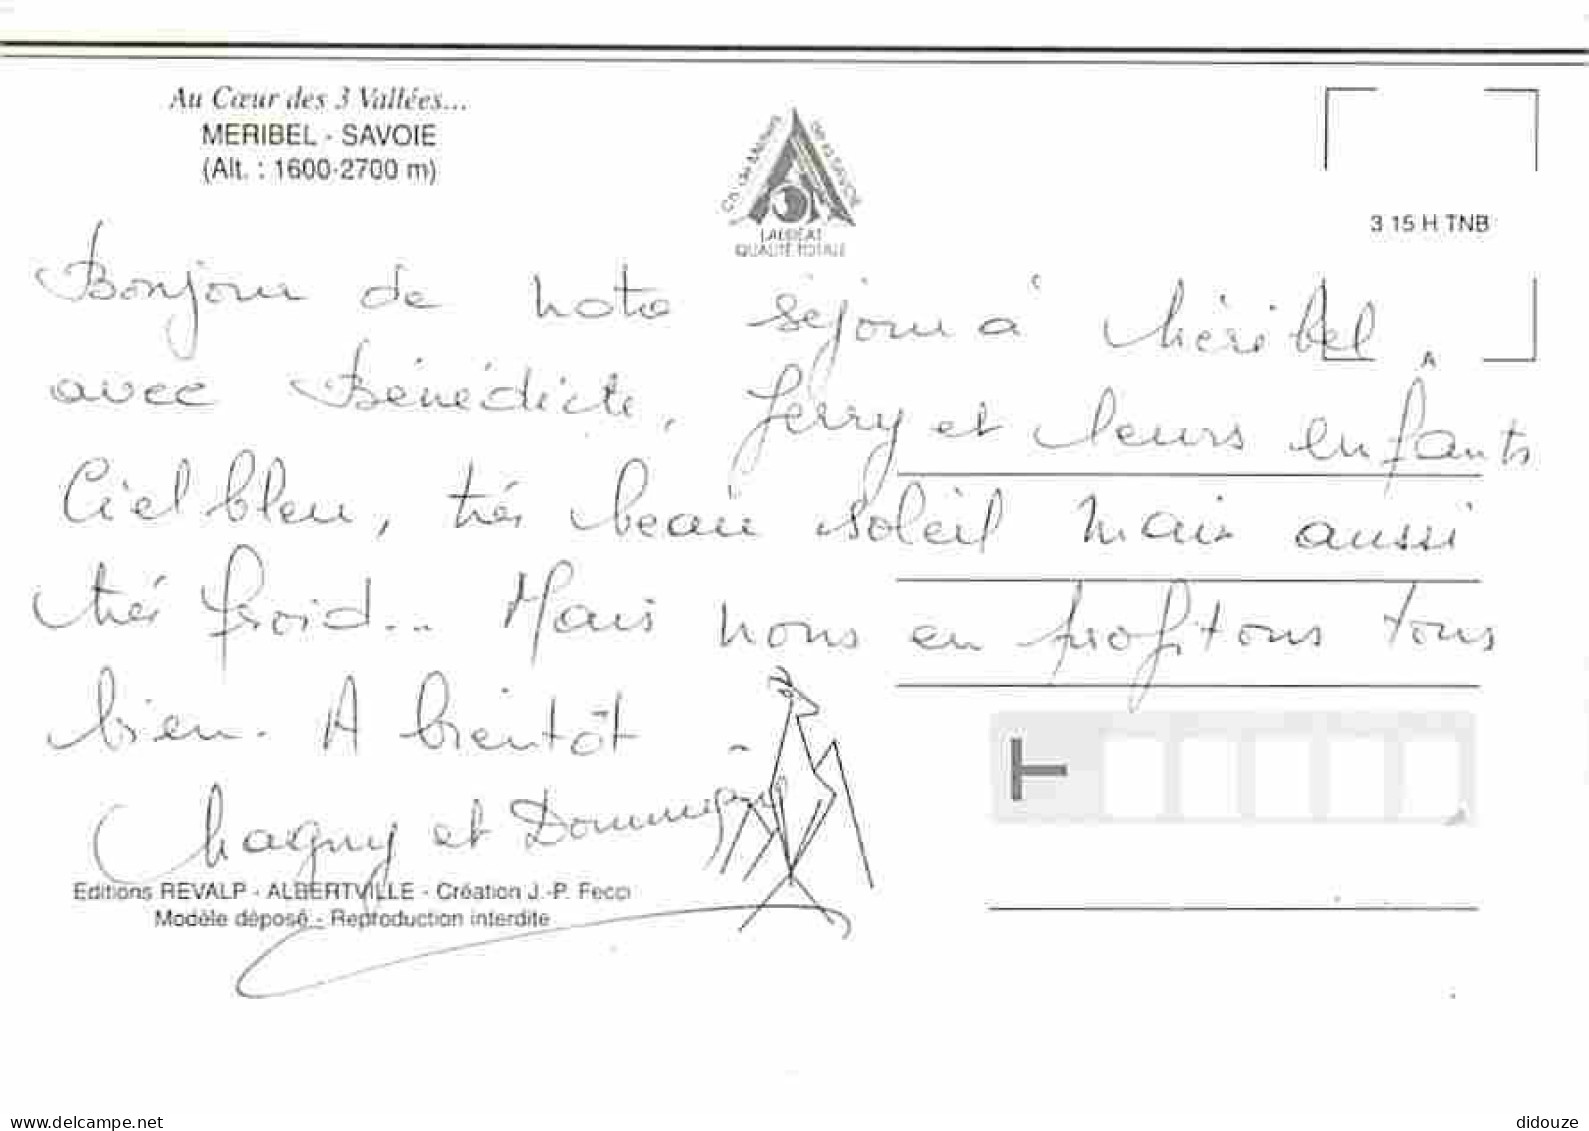 Au Cœur des 3 Vallées...
MERIBEL - SAVOIE
(Alt. : 1600-2700 m)
Ch. de Métiers de la SAVOIE
LAURÉAT
QUALITÉ TOTALE
3 15 H TNB
A
Bonjour de notre séjour à Méribel
avec Bénédicte, Jerry et leurs enfants
Ciel bleu, très beau soleil mais aussi
très froid... Mais nous en profitons tous
bien. A bientôt
et Dominique
Editions REVALP - ALBERTVILLE - Création J.-P. Fecci
Modèle déposé - Reproduction interdite
www.delcampe.net
didouze